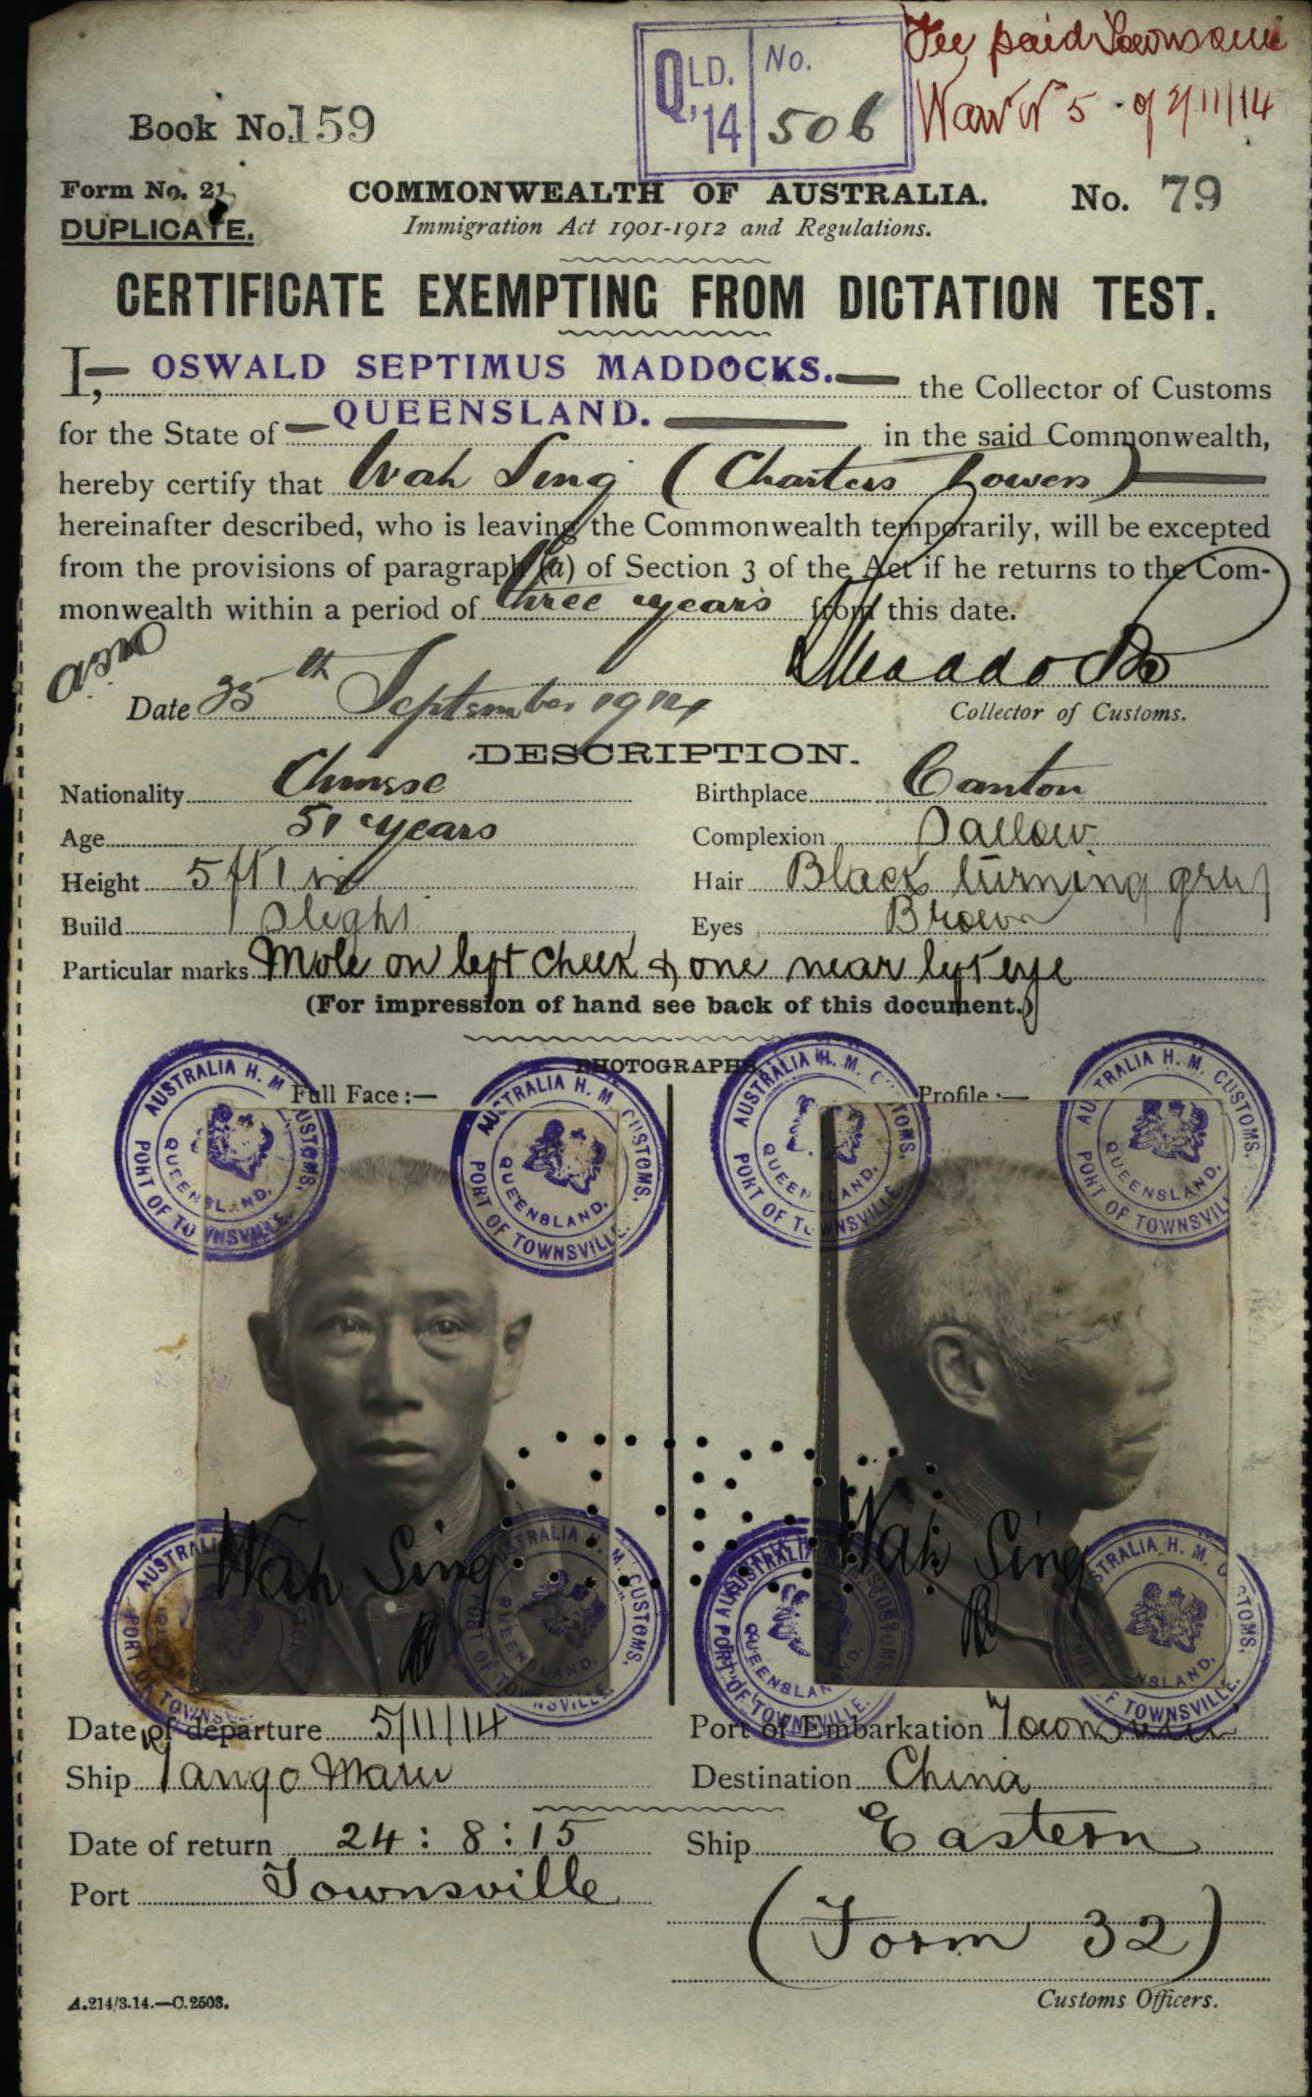 Fee paid Townsville
QLD. '14 No. 506
Warrt No 5 of 2/11/14
Book No. 159
Form No. 21.
DUPLICATE.
COMMONWEALTH OF AUSTRALIA.
No. 79
Immigration Act 1901-1912 and Regulations.
CERTIFICATE EXEMPTING FROM DICTATION TEST.
I,— OSWALD SEPTIMUS MADDOCKS.— the Collector of Customs
for the State of — QUEENSLAND. — in the said Commonwealth,
hereby certify that Wah Sing (Charters Towers)
hereinafter described, who is leaving the Commonwealth temporarily, will be excepted
from the provisions of paragraph (a) of Section 3 of the Act if he returns to the Com-
monwealth within a period of three years from this date.
Maddocks
Date 25th September 1914
Collector of Customs.
DESCRIPTION.
Nationality Chinese Birthplace Canton
Age 51 years Complexion Sallow
Height 5 ft 1 in Hair Black turning grey
Build Slight Eyes Brown
Particular marks Mole on left cheek & one near left eye
(For impression of hand see back of this document.)
PHOTOGRAPHS.
Full Face:— Profile:—
AUSTRALIA H. M. CUSTOMS, PORT OF TOWNSVILLE. QUEENSLAND.
AUSTRALIA H. M. CUSTOMS, PORT OF TOWNSVILLE. QUEENSLAND.
AUSTRALIA H. M. CUSTOMS, PORT OF TOWNSVILLE. QUEENSLAND.
AUSTRALIA H. M. CUSTOMS, PORT OF TOWNSVILLE. QUEENSLAND.
Wah Sing Wah Sing
AUSTRALIA H. M. CUSTOMS, PORT OF TOWNSVILLE. QUEENSLAND.
AUSTRALIA H. M. CUSTOMS, PORT OF TOWNSVILLE. QUEENSLAND.
AUSTRALIA H. M. CUSTOMS, PORT OF TOWNSVILLE. QUEENSLAND.
AUSTRALIA H. M. CUSTOMS, PORT OF TOWNSVILLE. QUEENSLAND.
Date of departure 5/11/14 Port of Embarkation Townsville
Ship Tango Maru Destination China
Date of return 24:8:15 Ship Eastern
Port Townsville
(Form 32)
A.214/3.14.—C.2503.
Customs Officers.